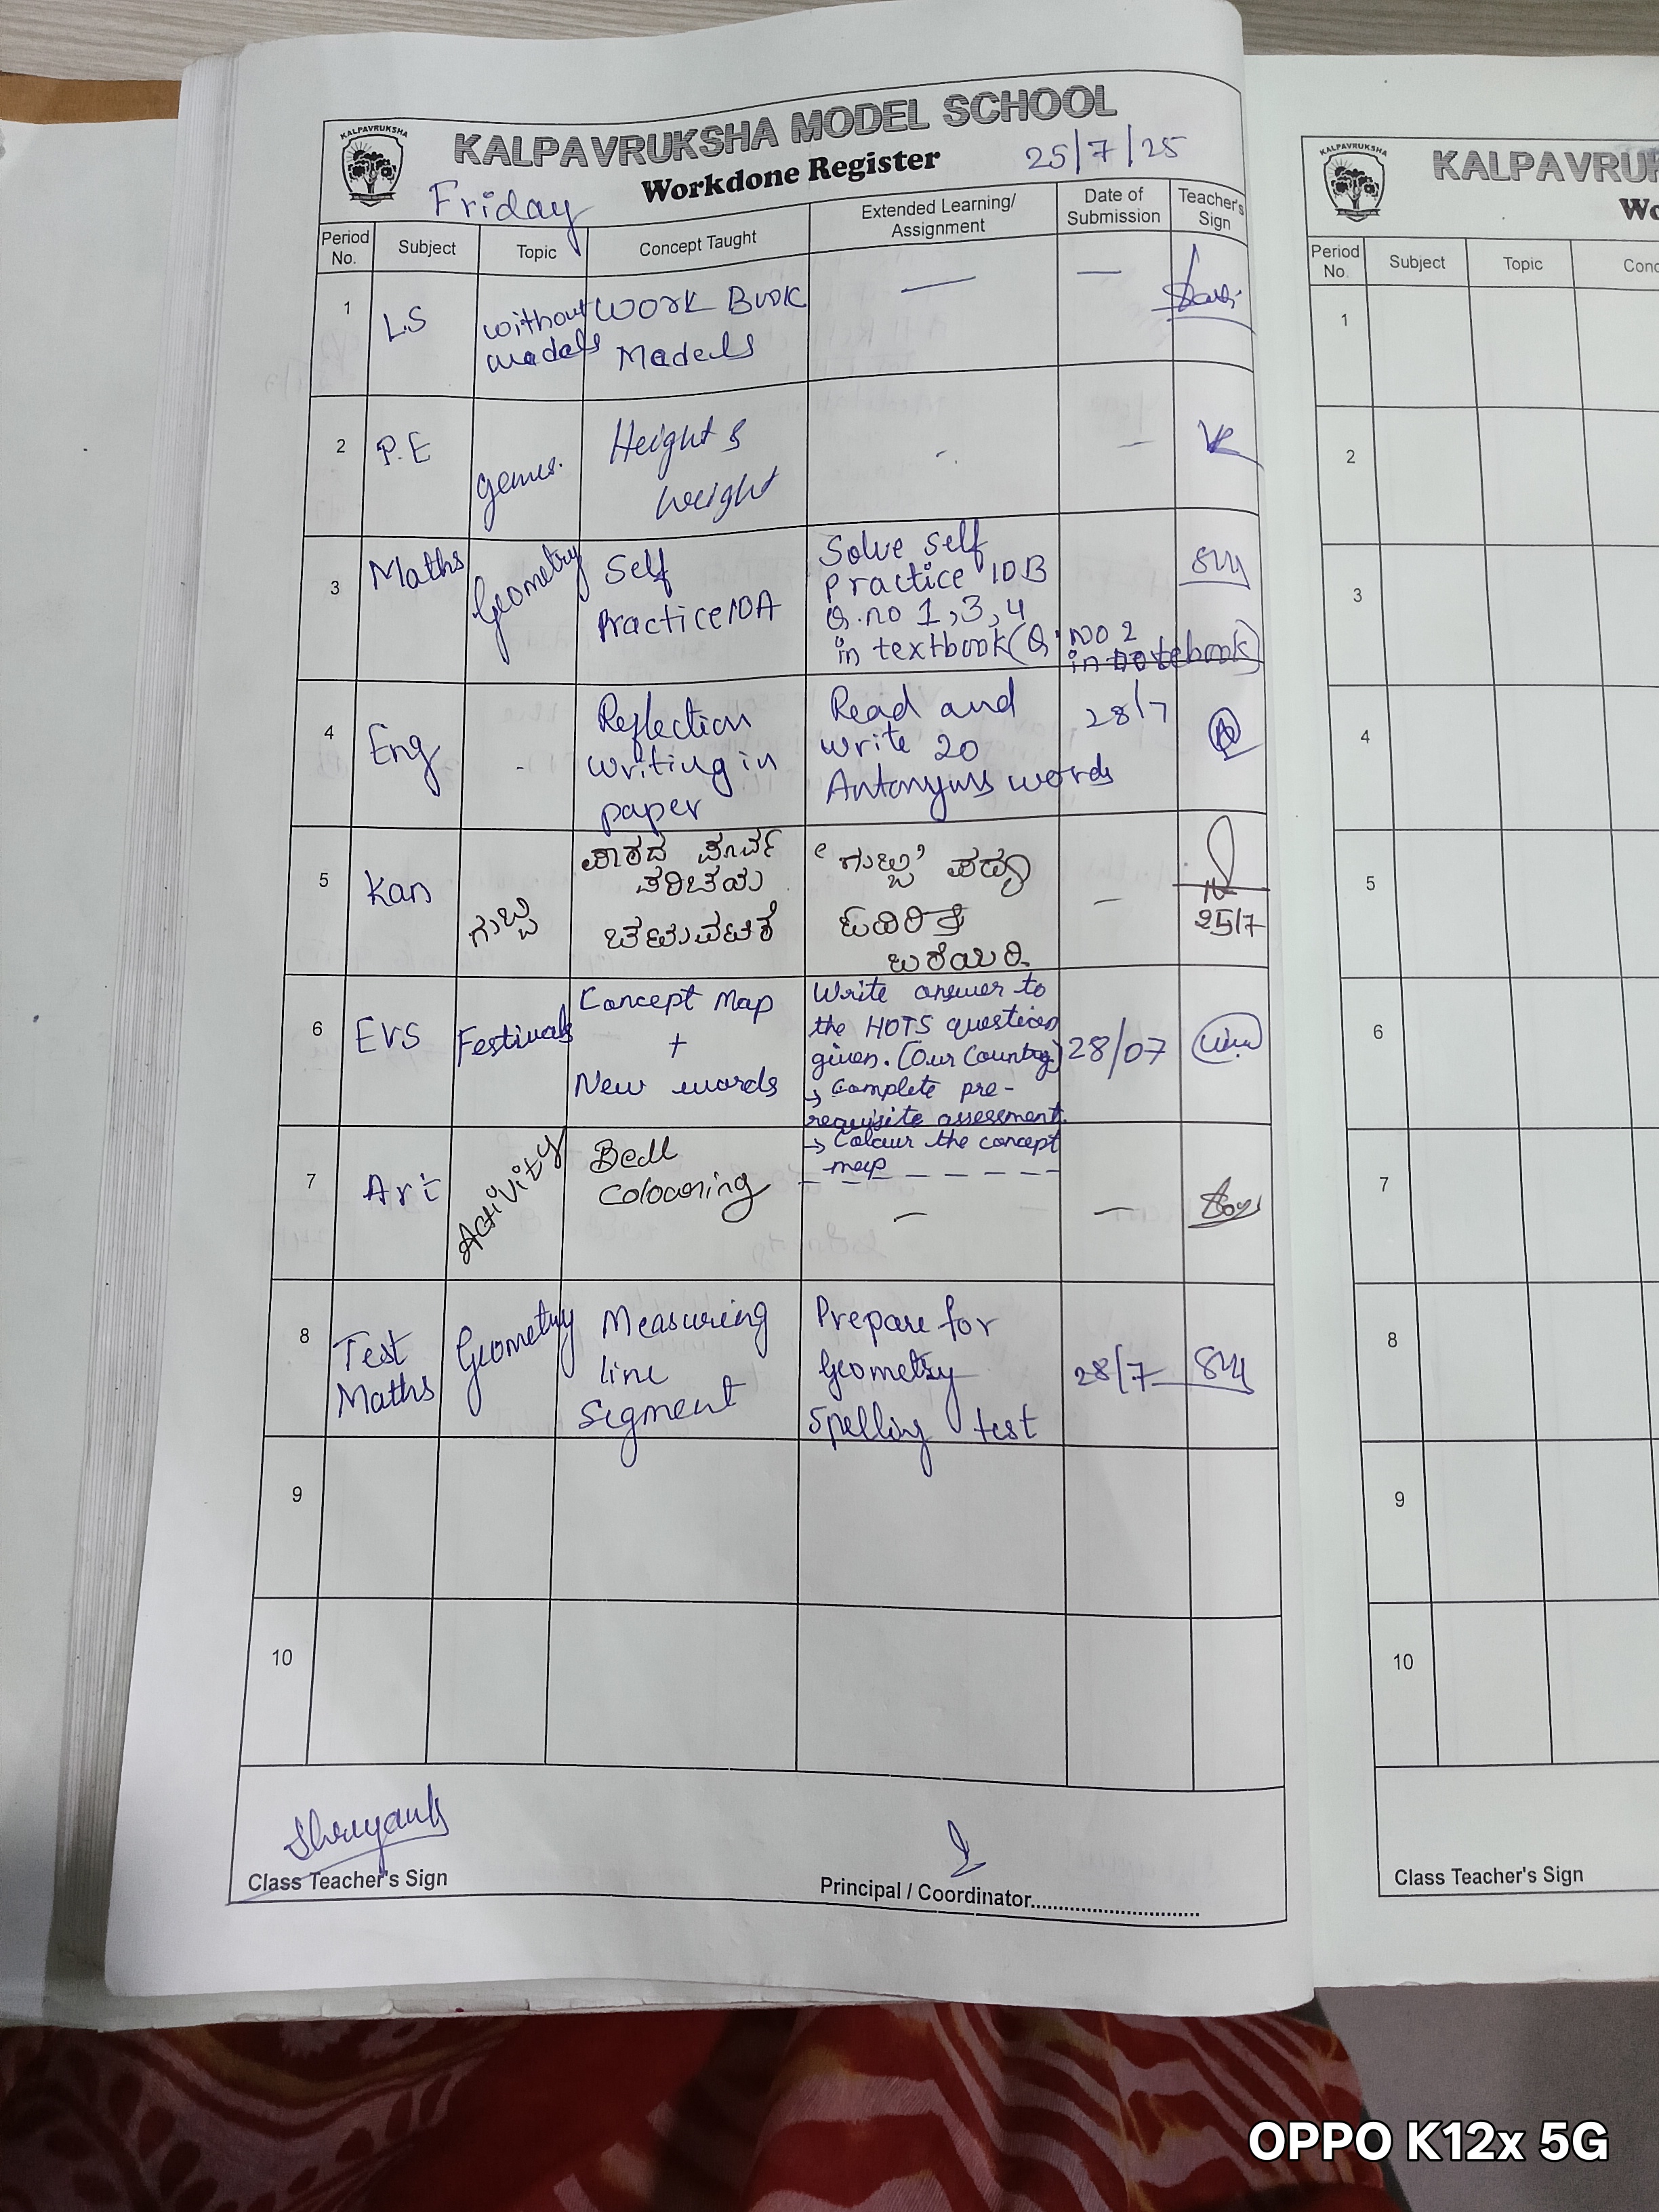 KALPAVRUKSHA
KALPAVRUKSHA MODEL SCHOOL
Workdone Register
25/7/25
Friday
Period No.
Subject
Topic
Concept Taught
Extended Learning/
Assignment
Date of
Submission
Teacher's
Sign
1
L.S
without
madels
Work Book
Madels
—
—
2
P.E
games.
Height &
weight
-.
—
3
Maths
Geometry
Self
Practice 10A
Solve self
practice 10B
Q.no 1,3,4
in textbook (Q.no 2
in notebook)
4
Eng
-
Reflection
writing in
paper
Read and
write 20
Antonyms words
28/7
5
Kan
ಗುಬ್ಬಿ
ಪಾಠದ ಪೂರ್ವ
ಪರಿಚಯ
ಚಟುವಟಿಕೆ
'ಗುಬ್ಬಿ' ಪದ್ಯ
ಬರೆಯಿರಿ.
—
25/7
6
EVS
Festivals
Concept Map
+
New words
Write answer to
the HOTS question
given. (Our Country)
→ Complete pre-
requisite assessment.
→ Colour the concept
map
28/07
7
Art
Activity
Bell
Colouring
—
—
8
Test
Maths
Geometry
Measuring
line
segment
Prepare for
Geometry
Spelling test
28/7
9
10
Class Teacher's Sign
Principal / Coordinator..............................
KALPAVRUKSHA
KALPAVRU
Wo
Period
No.
Subject
Topic
Conc
1
2
3
4
5
6
7
8
9
10
Class Teacher's Sign
OPPO K12x 5G